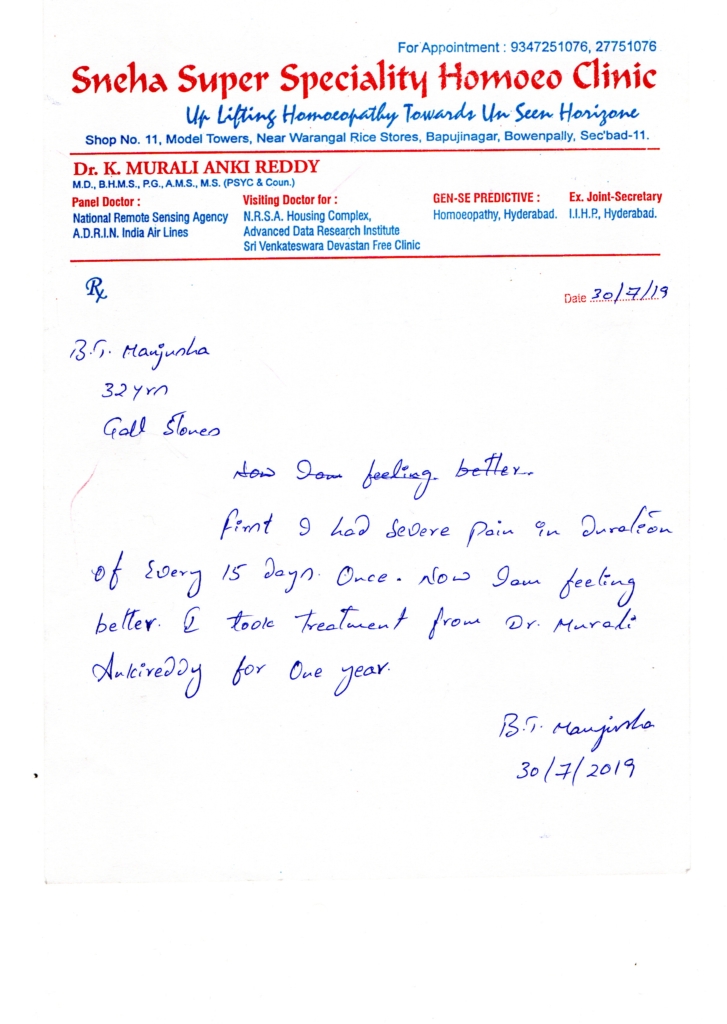 For Appointment : 9347251076, 27751076
Sneha Super Speciality Homoeo Clinic
Up Lifting Homoeopathy Towards Un Seen Horizone
Shop No. 11, Model Towers, Near Warangal Rice Stores, Bapujinagar, Bowenpally, Sec'bad-11.
Dr. K. MURALI ANKI REDDY
M.D., B.H.M.S., P.G., A.M.S., M.S. (PSYC & Coun.)
Panel Doctor :
National Remote Sensing Agency
A.D.R.I.N. India Air Lines
Visiting Doctor for :
N.R.S.A. Housing Complex,
Advanced Data Research Institute
Sri Venkateswara Devastan Free Clinic
GEN-SE PREDICTIVE :
Homoeopathy, Hyderabad.
Ex. Joint-Secretary
I.I.H.P., Hyderabad.
Rx
Date 30/7/19
B.T. Manjusha
32 yrs
Gall Stones
Now I am feeling better.
first I had severe pain in duration
of Every 15 days. Once. Now I am feeling
better. I took treatment from Dr. Murali
Ankireddy for One year.
B.T. Manjusha
30/7/2019